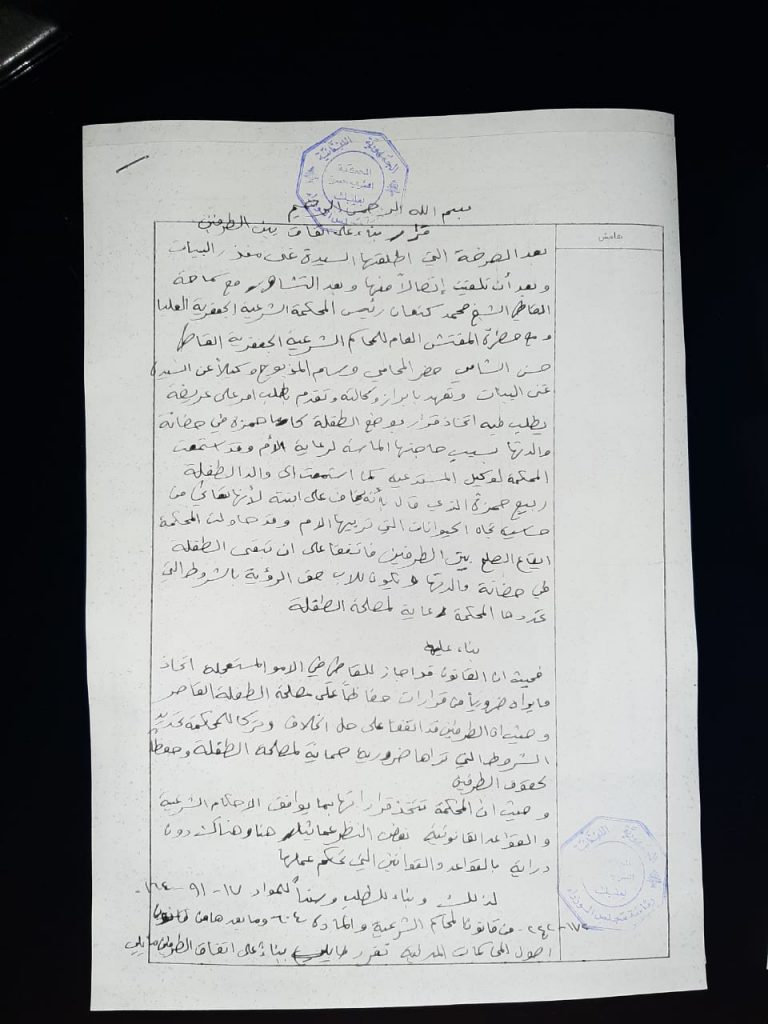 الجمهورية اللبنانية
المحكمة
بسم الله الرحمن الرحيم
هامش
قرار بناء على اتفاق بين الطرفين
بعد الصرخة التي اطلقتها السيدة غنى منذر البيات
وبعد أن تلقيت إتصالاً منها وبعد التشاور مع سماحة
القاضي الشيخ محمد كنعان رئيس المحكمة الشرعية الجعفرية العليا
ومع حضرة المفتش العام للمحاكم الشرعية الجعفرية القاضي
حسن الشامي حضر المحامي وسام المذبوح وكيلاً عن السيدة
غنى البيات وتعهد بابراز وكالته وتقدم بطلب امر على عريضة
يطلب فيه اتخاذ قرار بوضع الطفلة حمزة في حضانة
والدتها بسبب حاجتها الماسة لرعاية الأم وقد استمعت
المحكمة لوكيل المستدعية كما استمعت الى والد الطفلة
ربيع حمزة الذي قال بأنه يخاف على ابنته لأنها تعاني من
حساسية تجاه الحيوانات التي تربيها الام وقد حاولت المحكمة
ايقاع الصلح بين الطرفين فاتفقا على ان تبقى الطفلة
في حضانة والدتها ويكون للاب حق الرؤية بالشروط التي
تحددها المحكمة رعاية لمصلحة الطفلة
بناء عليه
فحيث ان القانون قد اجاز للقاضي في الامور المستعجلة اتخاذ
ما يراه ضرورياً من قرارات حفاظاً على مصلحة الطفلة القاصر
وحيث ان الطرفين قد اتفقا على حل الخلاف وتركا للمحكمة تحديد
الشروط التي تراها ضرورية حماية لمصلحة الطفلة وحفظاً
لحقوق الطرفين
وحيث ان المحكمة تتخذ قراراتها بما يوافق الاحكام الشرعية
والقواعد القانونية بغض النظر عما يثار هنا وهناك دون
دراية بالقواعد والقوانين التي تحكم عملها
لذلك وبناء للطلب وسنداً للمواد ١٧ - ٩١ - ١٦٤ -
١٧٢ - ٢٤٢ من قانون المحاكم الشرعية والمادة ٦٠٤ وما بعدها من قانون
اصول المحاكمات المدنية تقرر بناءً على اتفاق الطرفين ما يلي
الجمهورية اللبنانية
رئاسة مجلس الوزراء